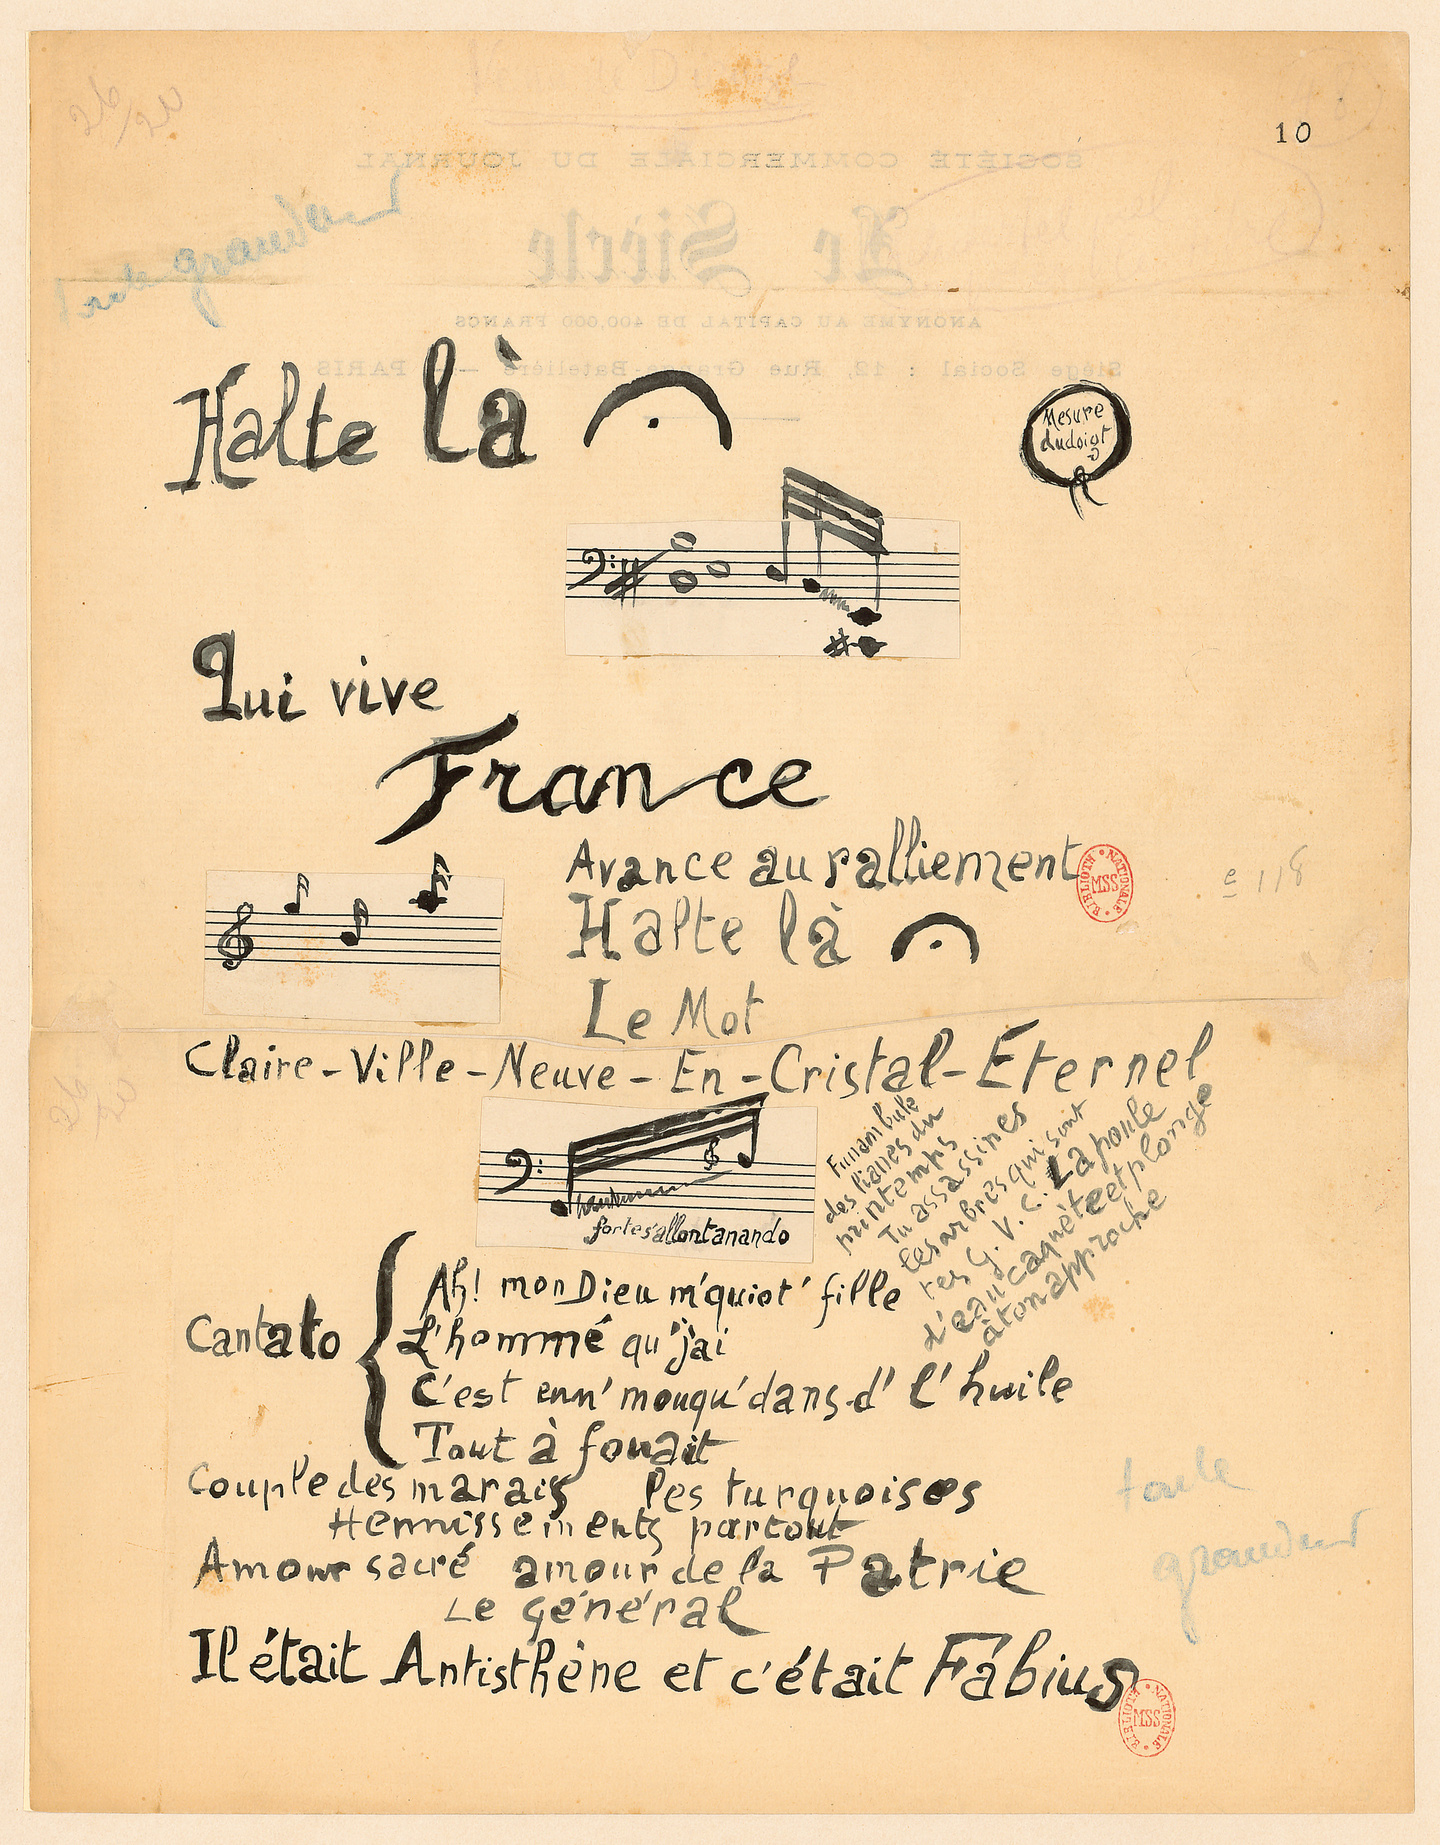 26/20
10
SOCIÉTÉ COMMERCIALE DU JOURNAL
Le Siècle
ANONYME AU CAPITAL DE 400,000 FRANCS
Siège Social : 12, Rue Grange-Batelière — PARIS
toute grandeur
Halte là
Mesure
du doigt
Qui vive
France
Avance au ralliement
BIBLIOTH. NATIONALE MSS
e 118
Halte là
Le Mot
Claire-Ville-Neuve-En-Cristal-Éternel
Funambule
des lianes du
printemps
Tu assassines
les arbres qui sont
tes G. V. C. La poule
d'eau caquète et plonge
à ton approche
forte s'allontanando
Cantato
Ah! mon Dieu m'quiot' fille
L'hommé qu'j'ai
C'est enn' mouqu' dans d' l'huile
Tout à fouait
Couple des marais les turquoises
Hennissements partout
Amour sacré amour de la Patrie
Le général
Il était Antisthène et c'était Fabius
toute
grandeur
BIBLIOTH. NATIONALE MSS